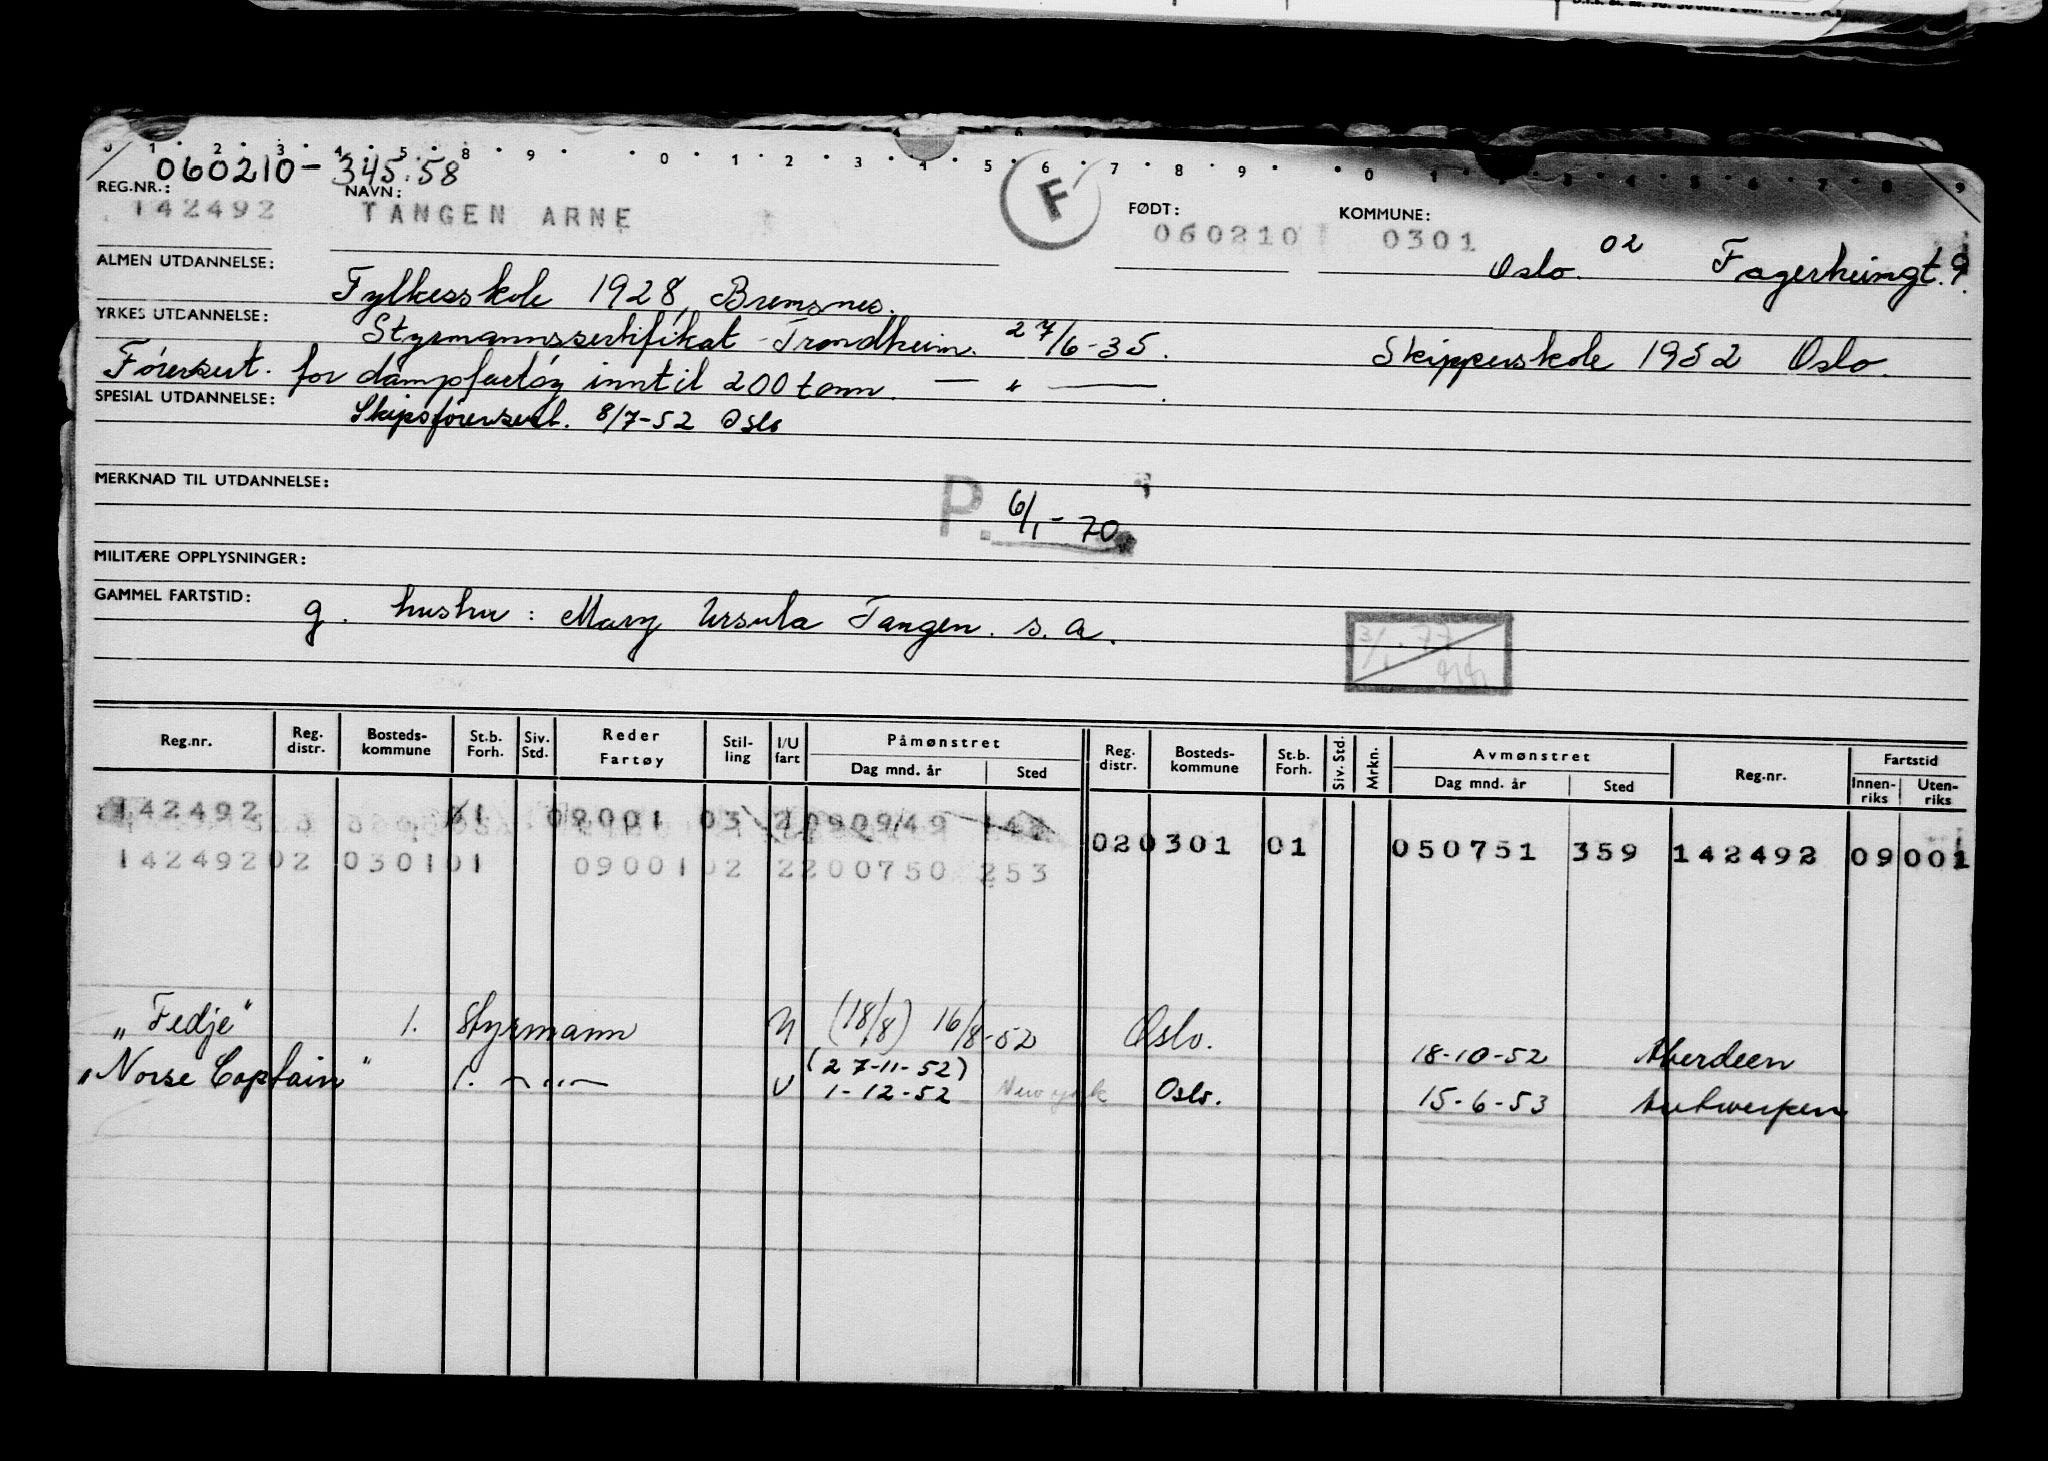 060210-345.58
REG.NR.: NAVN: FØDT: KOMMUNE:
142492 TANGEN ARNE F 060210 0301
Oslo. 02 Fagerheimgt. 9.
ALMEN UTDANNELSE: Fylkesskole 1928, Bremsnes.
YRKES UTDANNELSE: Styrmannssertifikat - Trondheim. 27/6-35. Skipperskole 1952 Oslo.
Førersert. for dampfartøy inntil 200 tonn. — " —
SPESIAL UTDANNELSE: Skipsførersert. 8/7-52 Oslo
MERKNAD TIL UTDANNELSE:
P. 6/1-70
MILITÆRE OPPLYSNINGER:
GAMMEL FARTSTID: g. hustru: Mary Ursula Tangen. s.a.
3/1.77
Reg.nr. Reg. distr. Bosteds-kommune St.b. Forh. Siv. Std. Reder Fartøy Stil-ling I/U fart Påmønstret Dag mnd. år Sted Reg. distr. Bosteds-kommune St.b. Forh. Siv. Std. Mrkn. Avmønstret Dag mnd. år Sted Reg.nr. Fartstid Innen-riks Uten-riks
142492 09001 03 2 090949 142
020301 01 050751 359 142492 09001
14249202 030101 0900102 2200750 253
"Fedje" 1. Styrmann U (18/8) 16/8-52 Oslo. 18-10-52 Aberdeen
"Norse Captain" 1. — " — U (27-11-52) 1-12-52 New York Oslo. 15-6-53 Antwerpen